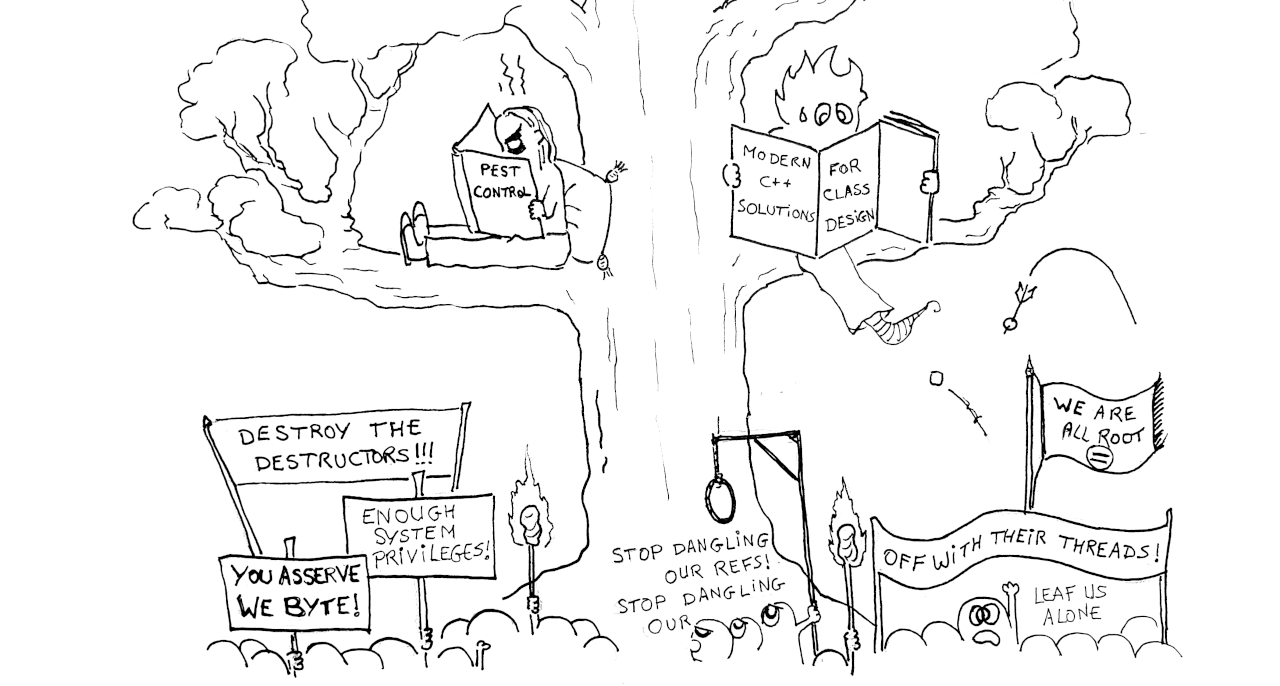 PEST
CONTROL
MODERN
C++
SOLUTIONS
FOR
CLASS
DESIGN
DESTROY THE
DESTRUCTORS!!!
ENOUGH
SYSTEM
PRIVILEGES!
YOU ASSERVE
WE BYTE!
STOP DANGLING
OUR REFS!
STOP DANGLING
OUR
WE ARE
ALL ROOT
OFF WITH THEIR THREADS!
LEAF US
ALONE